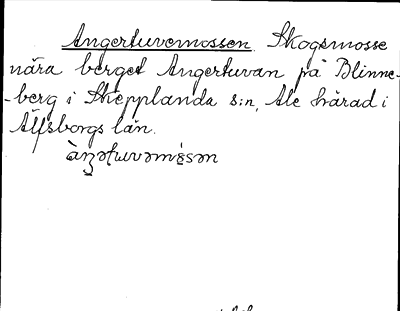 Angertuvemossen Skogsmosse
nära berget Angertuvan på Blinne-
-berg i Skepplanda s:n, Ale härad i
Älfsborgs län.